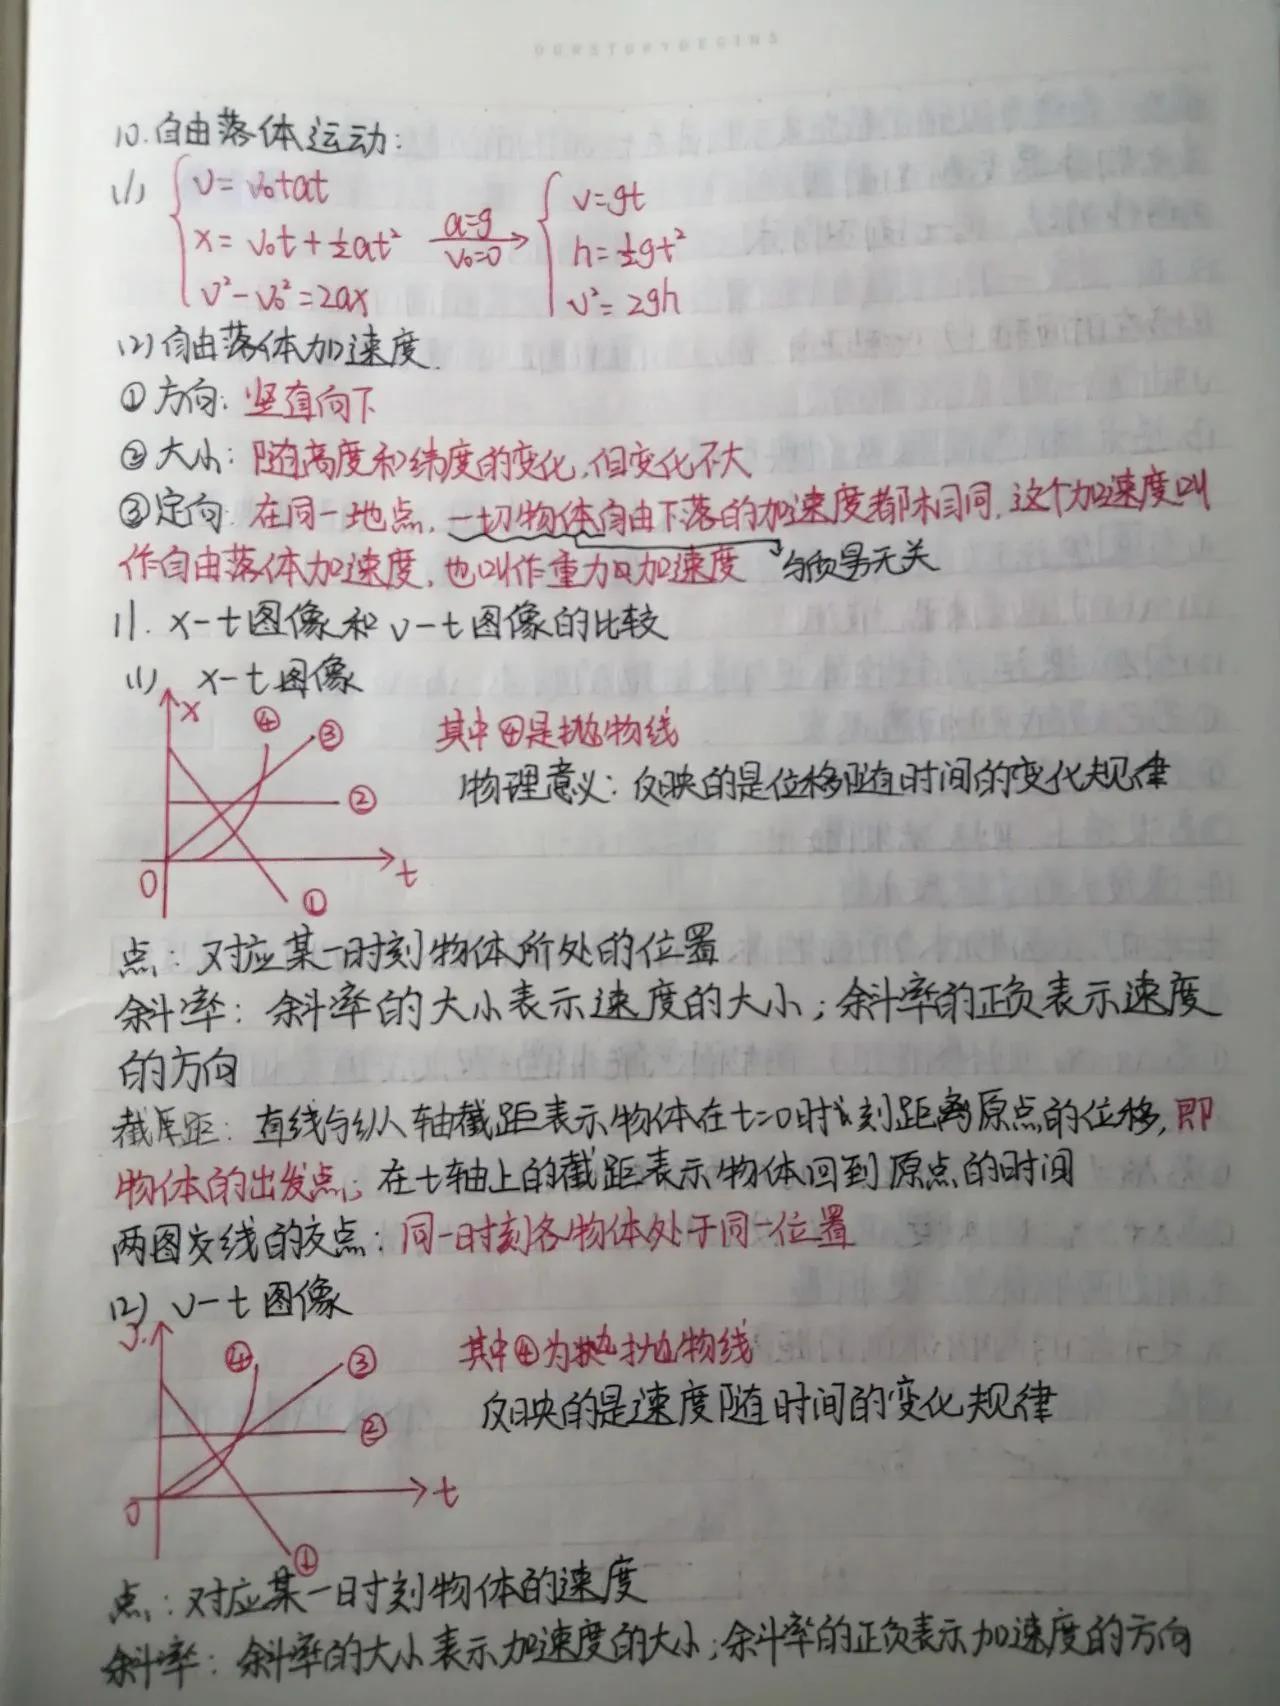 OURSTORYBEGINS
10.自由落体运动:
(1) v=v₀+at
x=v₀t+½at² a=g v₀=0 h=½gt²
v=gt
v²-v₀²=2ax v²=2gh
(2)自由落体加速度.
①方向:竖直向下
②大小:随高度和纬度的变化,但变化不大
③定向:在同一地点,一切物体自由下落的加速度都相同,这个加速度叫
作自由落体加速度,也叫作重力加速度 与质量无关
11.x-t图像和v-t图像的比较
(1) x-t图像
x ④ ③ 其中④是抛物线
② 物理意义:反映的是位移随时间的变化规律
0 t
①
点:对应某一时刻物体所处的位置
斜率:斜率的大小表示速度的大小;斜率的正负表示速度
的方向
截距:直线与纵轴截距表示物体在t=0时刻距离原点的位移,即
物体的出发点;在t轴上的截距表示物体回到原点的时间
两图线的交点:同一时刻各物体处于同一位置
(2) v-t图像
v ④ ③ 其中④为抛物线
② 反映的是速度随时间的变化规律
0 t
①
点:对应某一时刻物体的速度
斜率:斜率的大小表示加速度的大小;斜率的正负表示加速度的方向